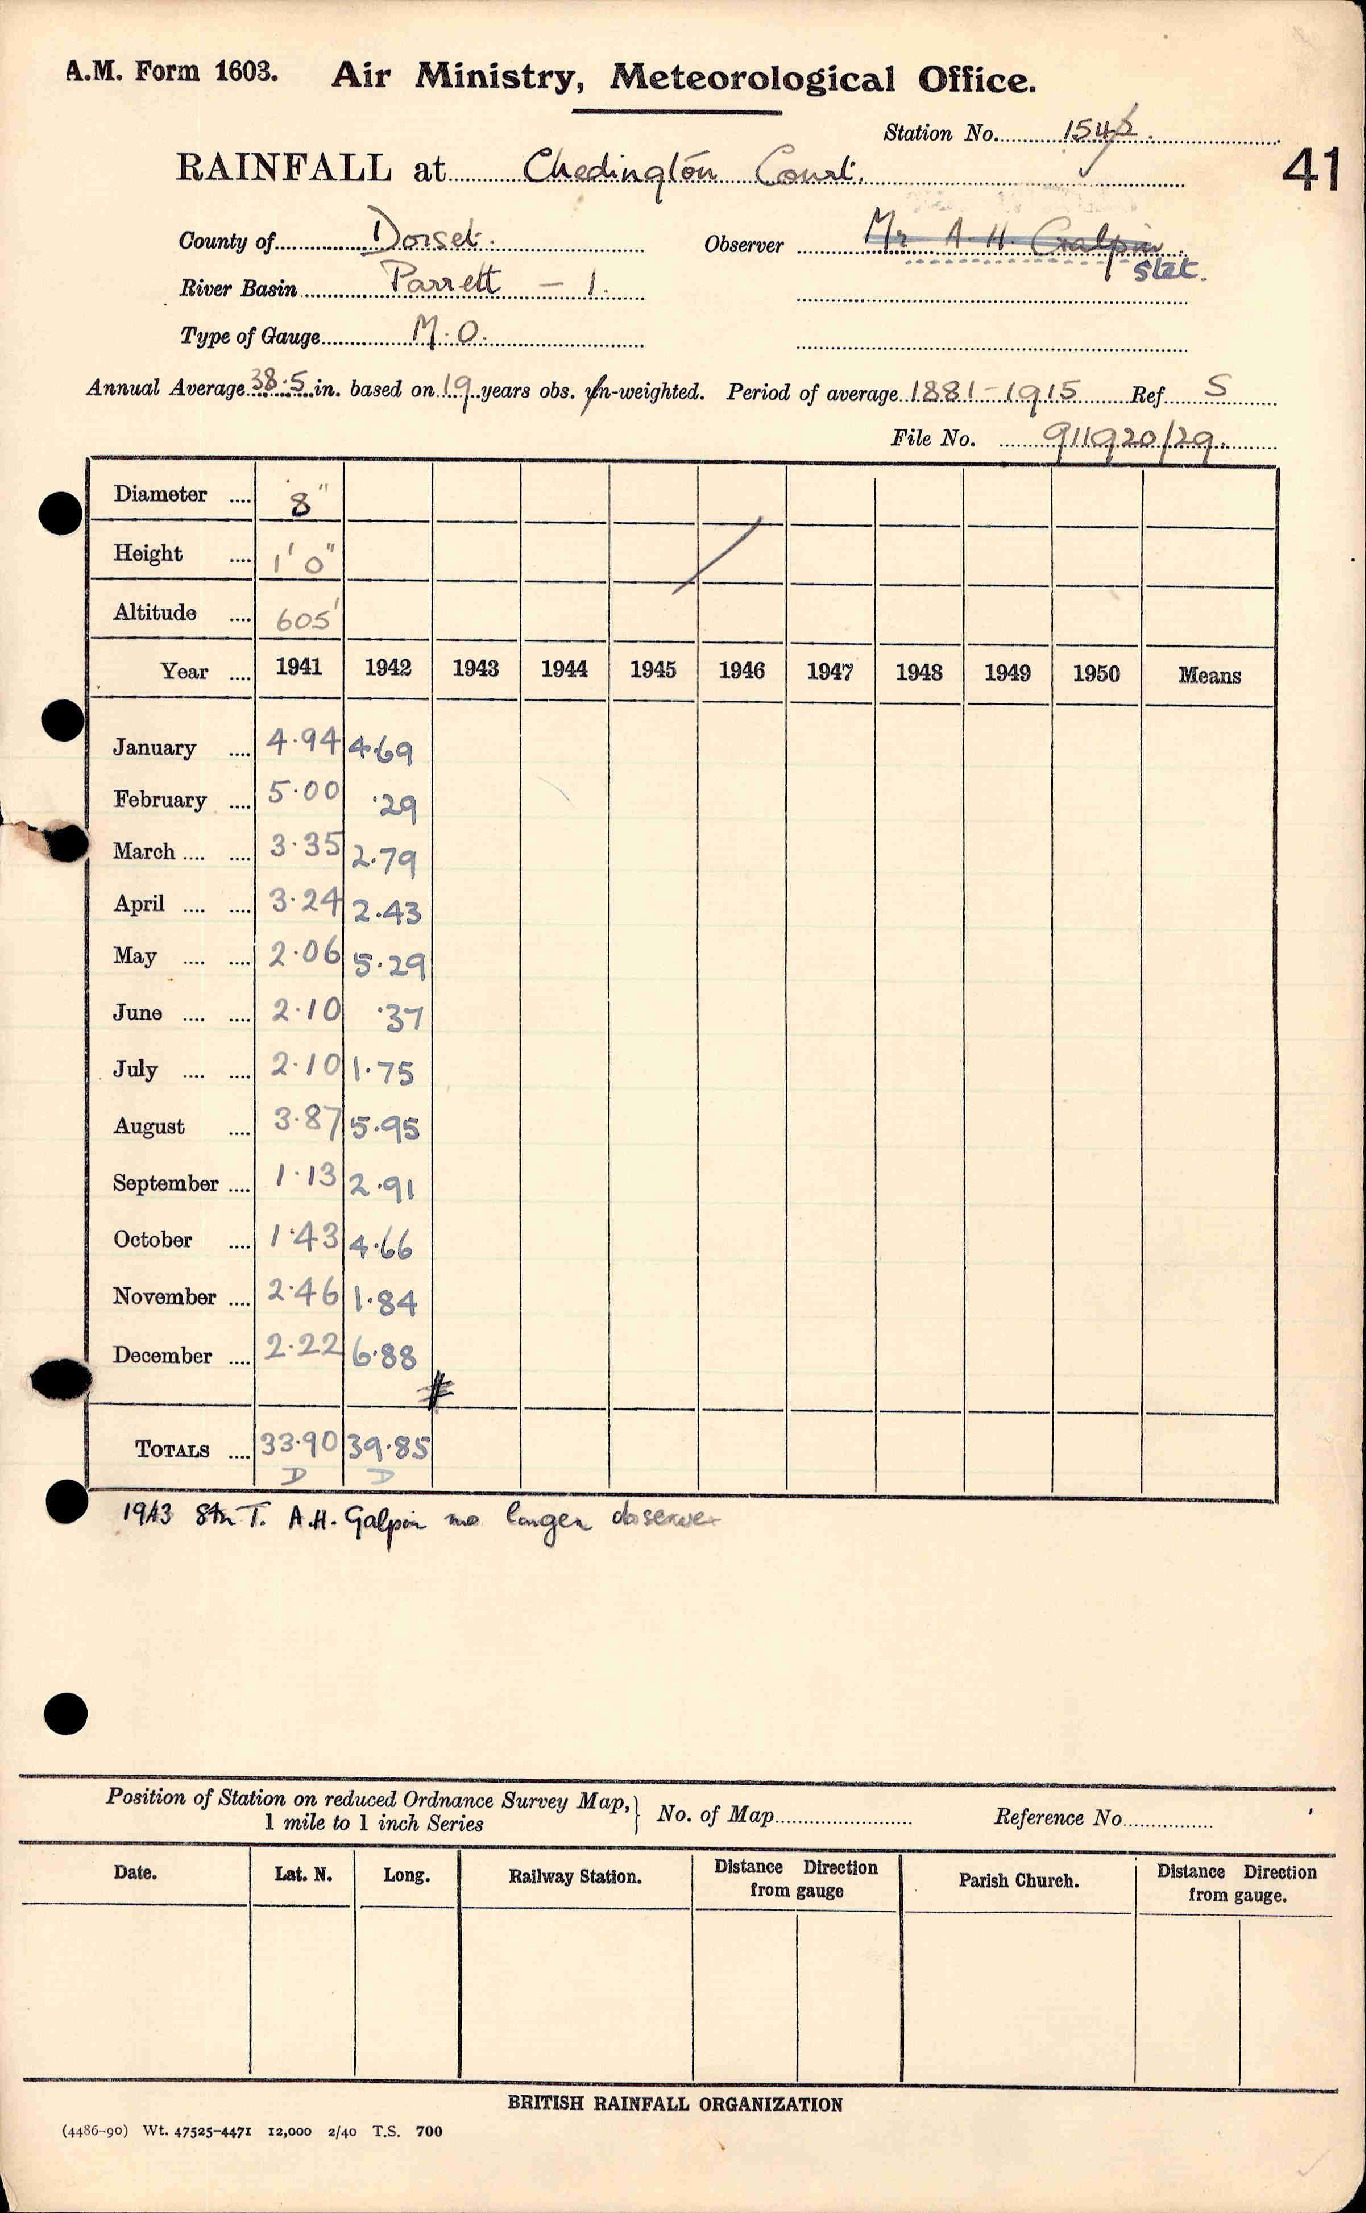 A.M. Form 1603. Air Ministry, Meteorological Office.
Station No. 1542
RAINFALL at Chedington Court.
41
County of Dorset. Observer Mr A. H. Galpin
stet.
River Basin Parrett - 1.
Type of Gauge M.O.
Annual Average 38.5 in. based on 19 years obs. un-weighted. Period of average 1881-1915 Ref S
File No. 911920/29.
Diameter .... 8"
Height .... 1' 0"
Altitude .... 605'
Year .... 1941 1942 1943 1944 1945 1946 1947 1948 1949 1950 Means
January .... 4.94 4.69
February .... 5.00 .29
March .... .... 3.35 2.79
April .... .... 3.24 2.43
May .... .... 2.06 5.29
June .... .... 2.10 .37
July .... .... 2.10 1.75
August .... 3.87 5.95
September .... 1.13 2.91
October .... 1.43 4.66
November .... 2.46 1.84
December .... 2.22 6.88
TOTALS .... 33.90 39.85
D D
1943 Stn T. A.H. Galpin no longer observer
Position of Station on reduced Ordnance Survey Map,
1 mile to 1 inch Series } No. of Map Reference No.
Date. Lat. N. Long. Railway Station. Distance Direction from gauge Parish Church. Distance Direction from gauge.
BRITISH RAINFALL ORGANIZATION
(4486-90) Wt. 47525-4471 12,000 2/40 T.S. 700